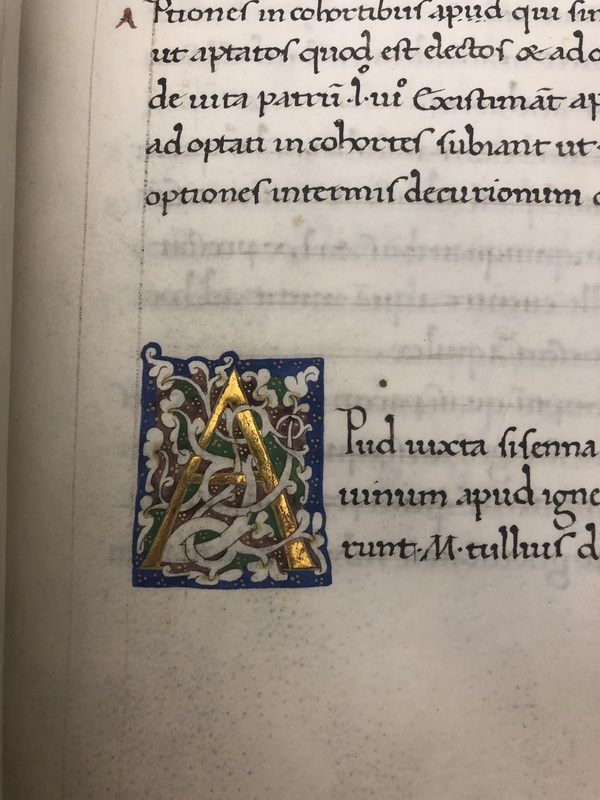 A Ptiones in cohortibus apud qui sin
ut aptatos quod est electos & ado
de uita patrū ·l·uiº Existimāt ap
adoptati in cohortes subiant ut
optiones intermis decurionum
A Pud iuxta sisenna
uinum apud igne
runt·M·tullius d